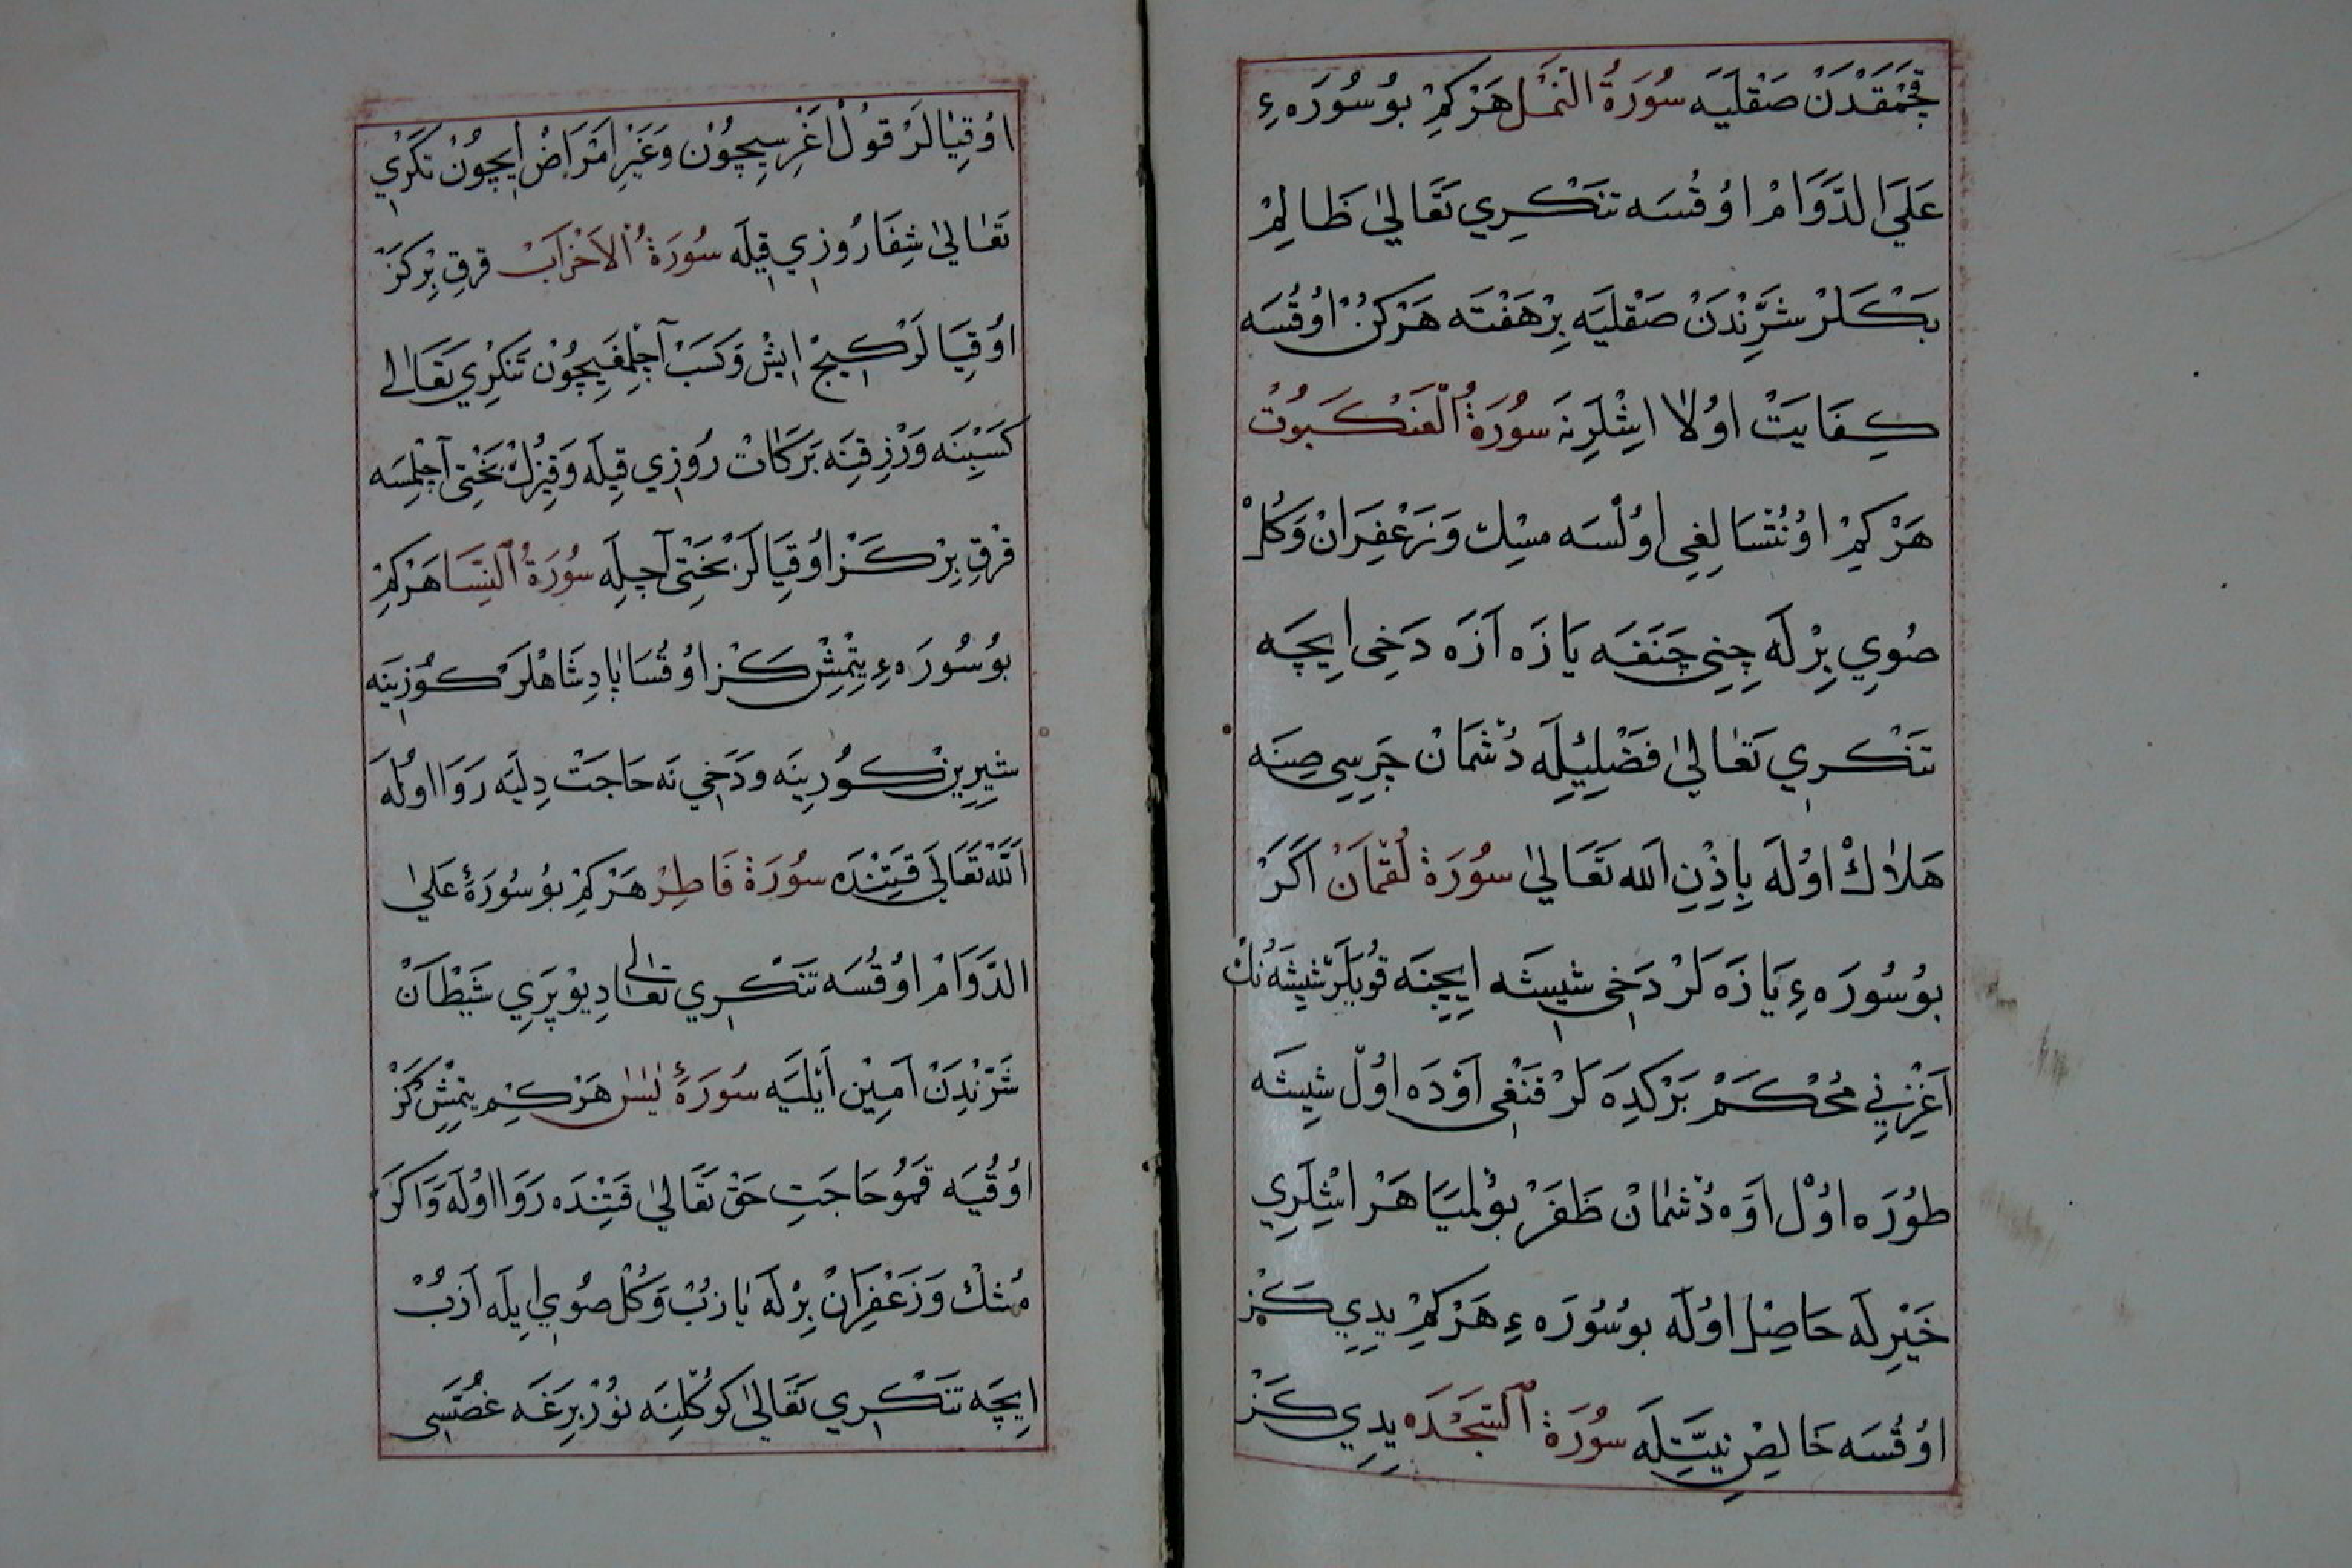 قچمقدن صقليه سورة النمل هركم بو سوره ء
على الدوام اوقسه تنكري تعالى ظالم
بكلر شرندن صقليه بر هفته هركن اوقسه
كفايت اولا اشلرنه سورة العنكبوت
هركم اونتسالغى اولسه مسك وزعفران وكل
صوي برله چنى چنغه يازه ازه دخى ايچه
تنكري تعالى فضليله دشمان چريسى صنه
هلاك اوله باذن الله تعالى سورة لقمان اكر
بو سوره ء يازه لر دخى شيشه ايچنه قويلر شيشه نك
اغزني محكم بركده لر قنغى اوده اول شيشه
طوره اول اوه دشمان ظفر بولميا هر اشلري
خيرله حاصل اوله بو سوره ء هركم يدي كز
اوقسه خالص نيتله سورة السجده يدي كز
اوقيالر قول اغرسيچون وغير امراض ايچون تكري
تعالى شفا روزي قيله سورة الاحزاب قرق بركز
اوقيالر كيج ايش وكسب آچلمغيچون تنكري تعالى
كسبنه ورزقنه بركات روزي قيله وقيزك بختى آچلمسه
قرق بركز اوقيالر بختى آچله سورة النسا هركم
بو سوره ء يتمش كز اوقسا پادشاهلر كوزينه
شيرين كورينه ودخي نه حاجت دليه روا اوله
الله تعالى قتنده سورة فاطر هركم بو سورة على
الدوام اوقسه تنكري تعالى ديو پري شيطان
شرندن امين ايليه سورة يس هركم يتمش كز
اوقيه قمو حاجت حق تعالى قتنده روا اوله واكر
مشك وزعفران برله يازب وكل صوي ايله ازب
ايچه تنكري تعالى كوكلنه نور برغه غصسى